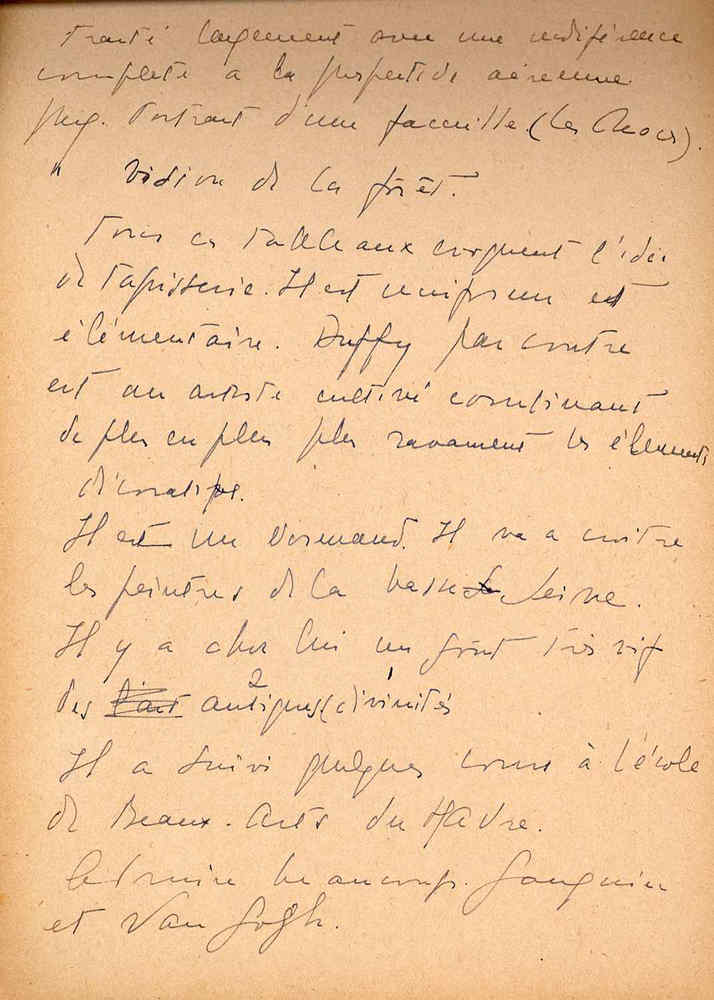 Traité largement avec une indiférence
complète a la perspective aérienne
Portrait d'une famille. (les
" Vision de la forêt.
Tous ces tableaux évoquent l'idée
de tapisserie. Il est uniforme et
élémentaire. Duffy par contre
est un artiste cultivé combinant
de plus en plus plus savament les éléments
décoratifs.
Il est un Normand. Il va a
les peintres de la basse Seine.
Il y a chez lui un goût très vif
des l'art antiques 2 (divinités 1
Il a suivi quelques cours à l'école
de Beaux-Arts du Havre.
Il admire beaucoup Gauguin
et Van Gogh.